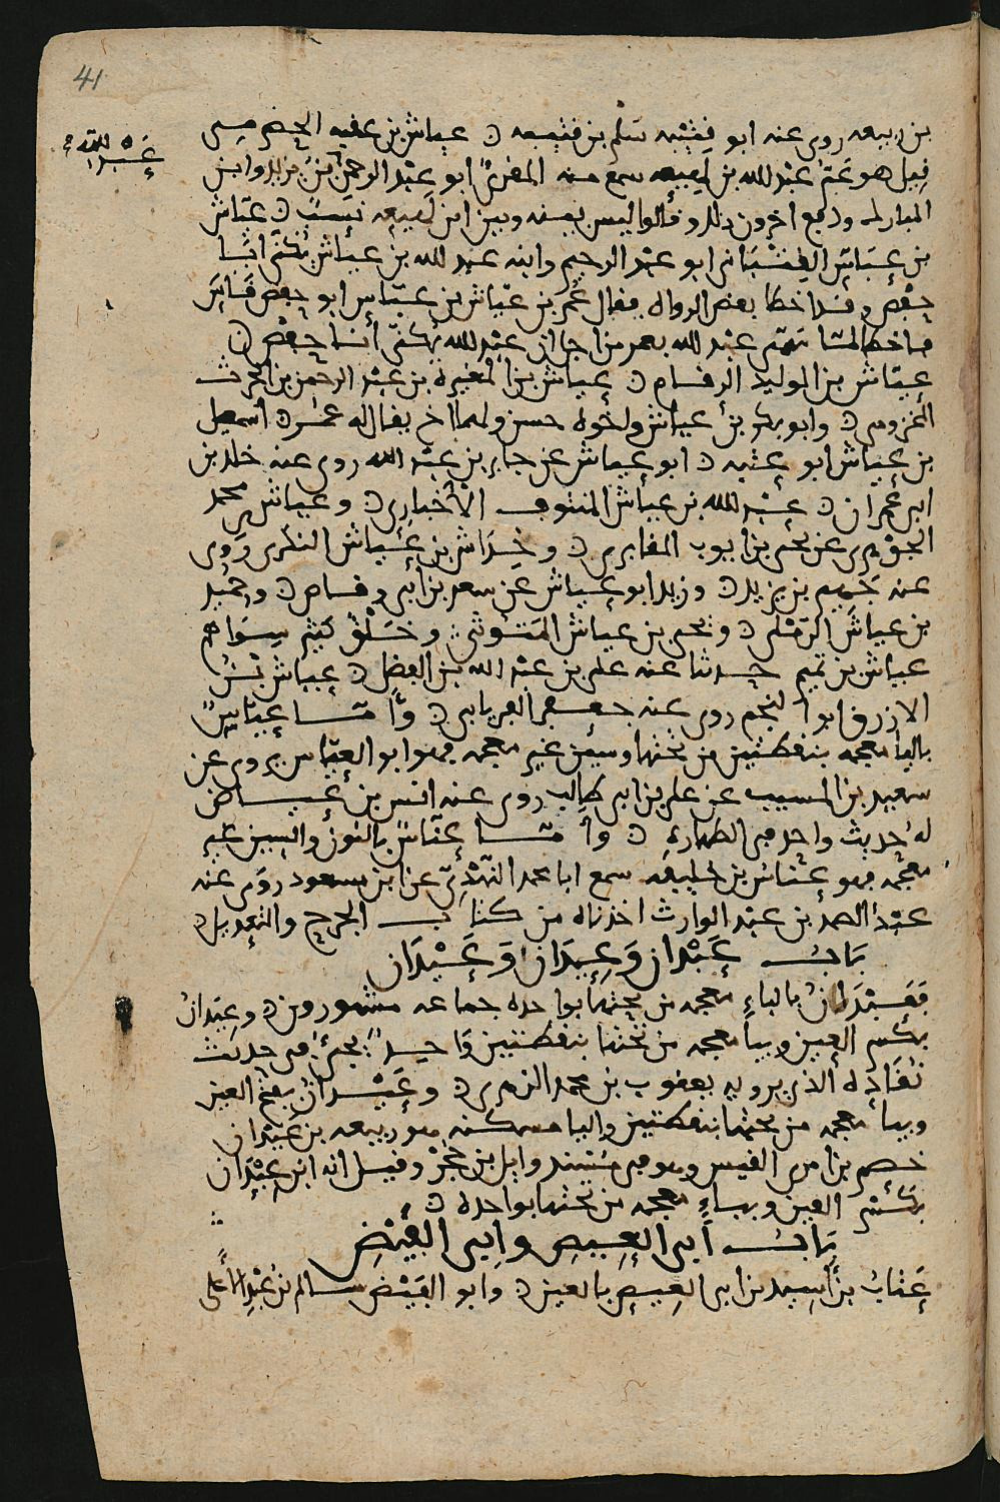 41
عبد الله
بن ربيعه روى عنه ابو قتيبه سلم بن قتيبه ٥ عياش بن عقبه الحضرمى
قيل هو عم عبد الله بن لهيعه سمع منه المقرئ ابو عبد الرحمن بن يزيد وابن
المبارك ودفع اخرون ذلك وقالوا ليس بينه وبين ابن لهيعه نسب ٥ عياش
بن عباس القتبانى ابو عبد الرحيم وابنه عبد الله بن عياش يكنى ابا
حفص وقد اخطا بعض الرواه فقال عمر بن عياش بن عباس ابو حفص
فاخطا لما سمى عبد الله بعمر من اجل ان عبد الله يكنى ابا حفص ٥
عياش بن الوليد الرقام ٥ عياش بن المغيره بن عبد الرحمن بن الحرث
المخزومى ٥ وابو بكر بن عياش واخوه حسن ولهما اخ يقال له عمر ٥ اسمعيل
بن عياش ابو عتبه ٥ ابو عياش عن جابر بن عبد الله روى عنه خلد بن
ابى عمران ٥ عبد الله بن عياش المنتوف الاخبارى ٥ وعياش محمد
الجوهرى عن يحيى بن ايوب المقابرى ٥ وخداش بن عياش روى
عنه جهيم بن يزيد ٥ وزيد ابو عياش عن سعد بن ابى وقاص ٥ وحميد
بن عياش الرملى ٥ ويحيى بن عياش وخلق كثير سواهم
عياش بن تميم حدثنا عنه على بن عبد الله بن الفضل ٥ عياش بن
الازرق ابو النجم روى عنه جعفر الفريابى ٥ واما عياس
باليا معجمه بنقطتين من تحتها وسين غير معجمه فهو ابو العياس يروى عن
سعيد بن المسيب عن على بن ابى طالب روى عنه انس بن عياض
له حديث واحد فى الطهاره ٥ واما عناس بالنون والسين غير
معجمه فهو عناس بن خليفه سمع ابا محمد النهدى عن ابن مسعود روى عنه
عبد الصمد بن عبد الوارث اخذناه من كتاب الجرح والتعديل ٥
باب عبدان وعيدان وعيدان
فعبدان بالباء معجمه من تحتها بواحده جماعه مشهورون ٥ وعيدان
بكسر العين وبيا معجمه من تحتها بنقطتين واحد يجئ فى حديث
نقاده الذى يرويه يعقوب بن محمد الزهرى ٥ وعيدان بفتح العين
وبيا معجمه من تحتها بنقطتين واليا مسكنه هو ربيعه بن عيدان
خصم بن امرى القيس وهو فى مسند وايل بن حجر وقيل انه ابن عبدان
بكسر العين وبباء معجمه من تحتها بواحده ٥
باب ابى العيص وابى الفيض
عتاب بن اسيد بن ابى العيص بالعين ٥ وابو الفيض سالم بن عبد الاعلى